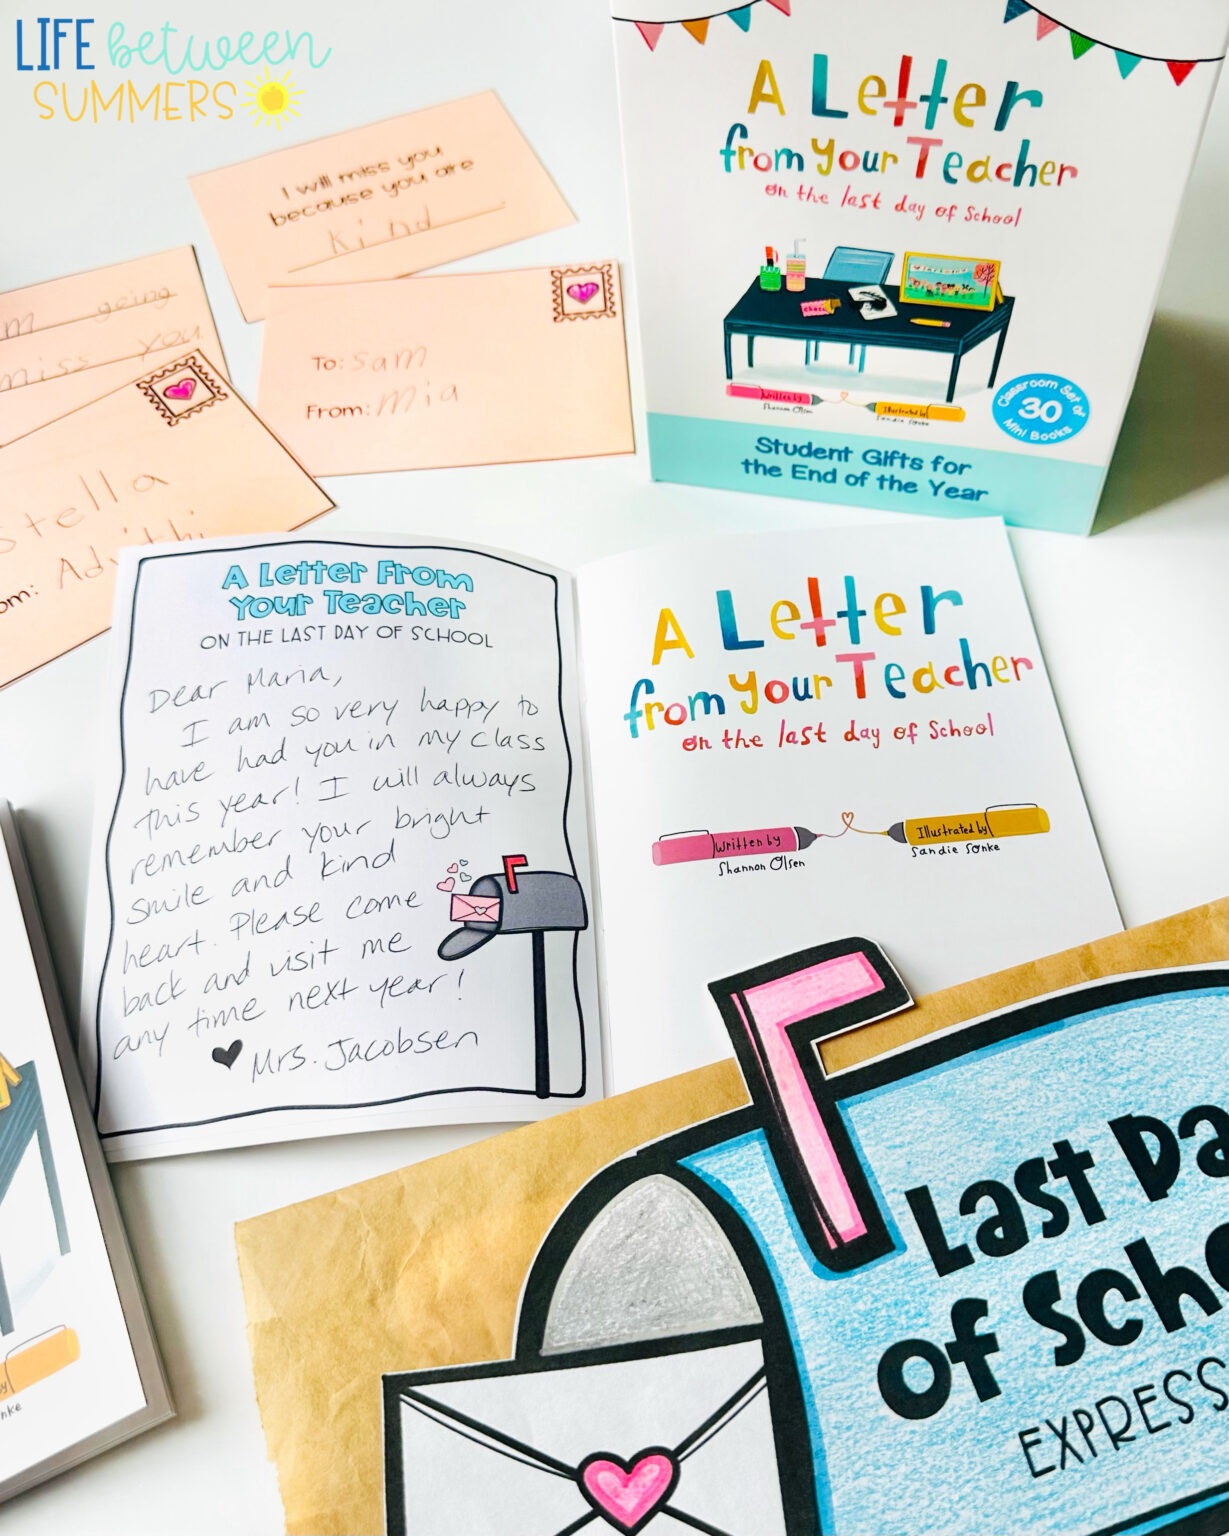 LIFE between
SUMMERS
I will miss you
because you are
kind
going
miss you
To: Sam
From: Mia
Stella
A Letter
from Your Teacher
on the last day of School
Written by
Shannon Olsen
Illustrated by
Sandie Sonke
Classroom Set of
30
Mini Books
Student Gifts for
the End of the Year
A Letter From
Your Teacher
ON THE LAST DAY OF SCHOOL
Dear Maria,
I am so very happy to
have had you in my class
this year! I will always
remember your bright
smile and kind
heart. Please come
back and visit me
any time next year!
Mrs. Jacobsen
A Letter
from Your Teacher
on the last day of School
Written by
Shannon Olsen
Illustrated by
Sandie Sonke
Last Da
of Scho
EXPRESS